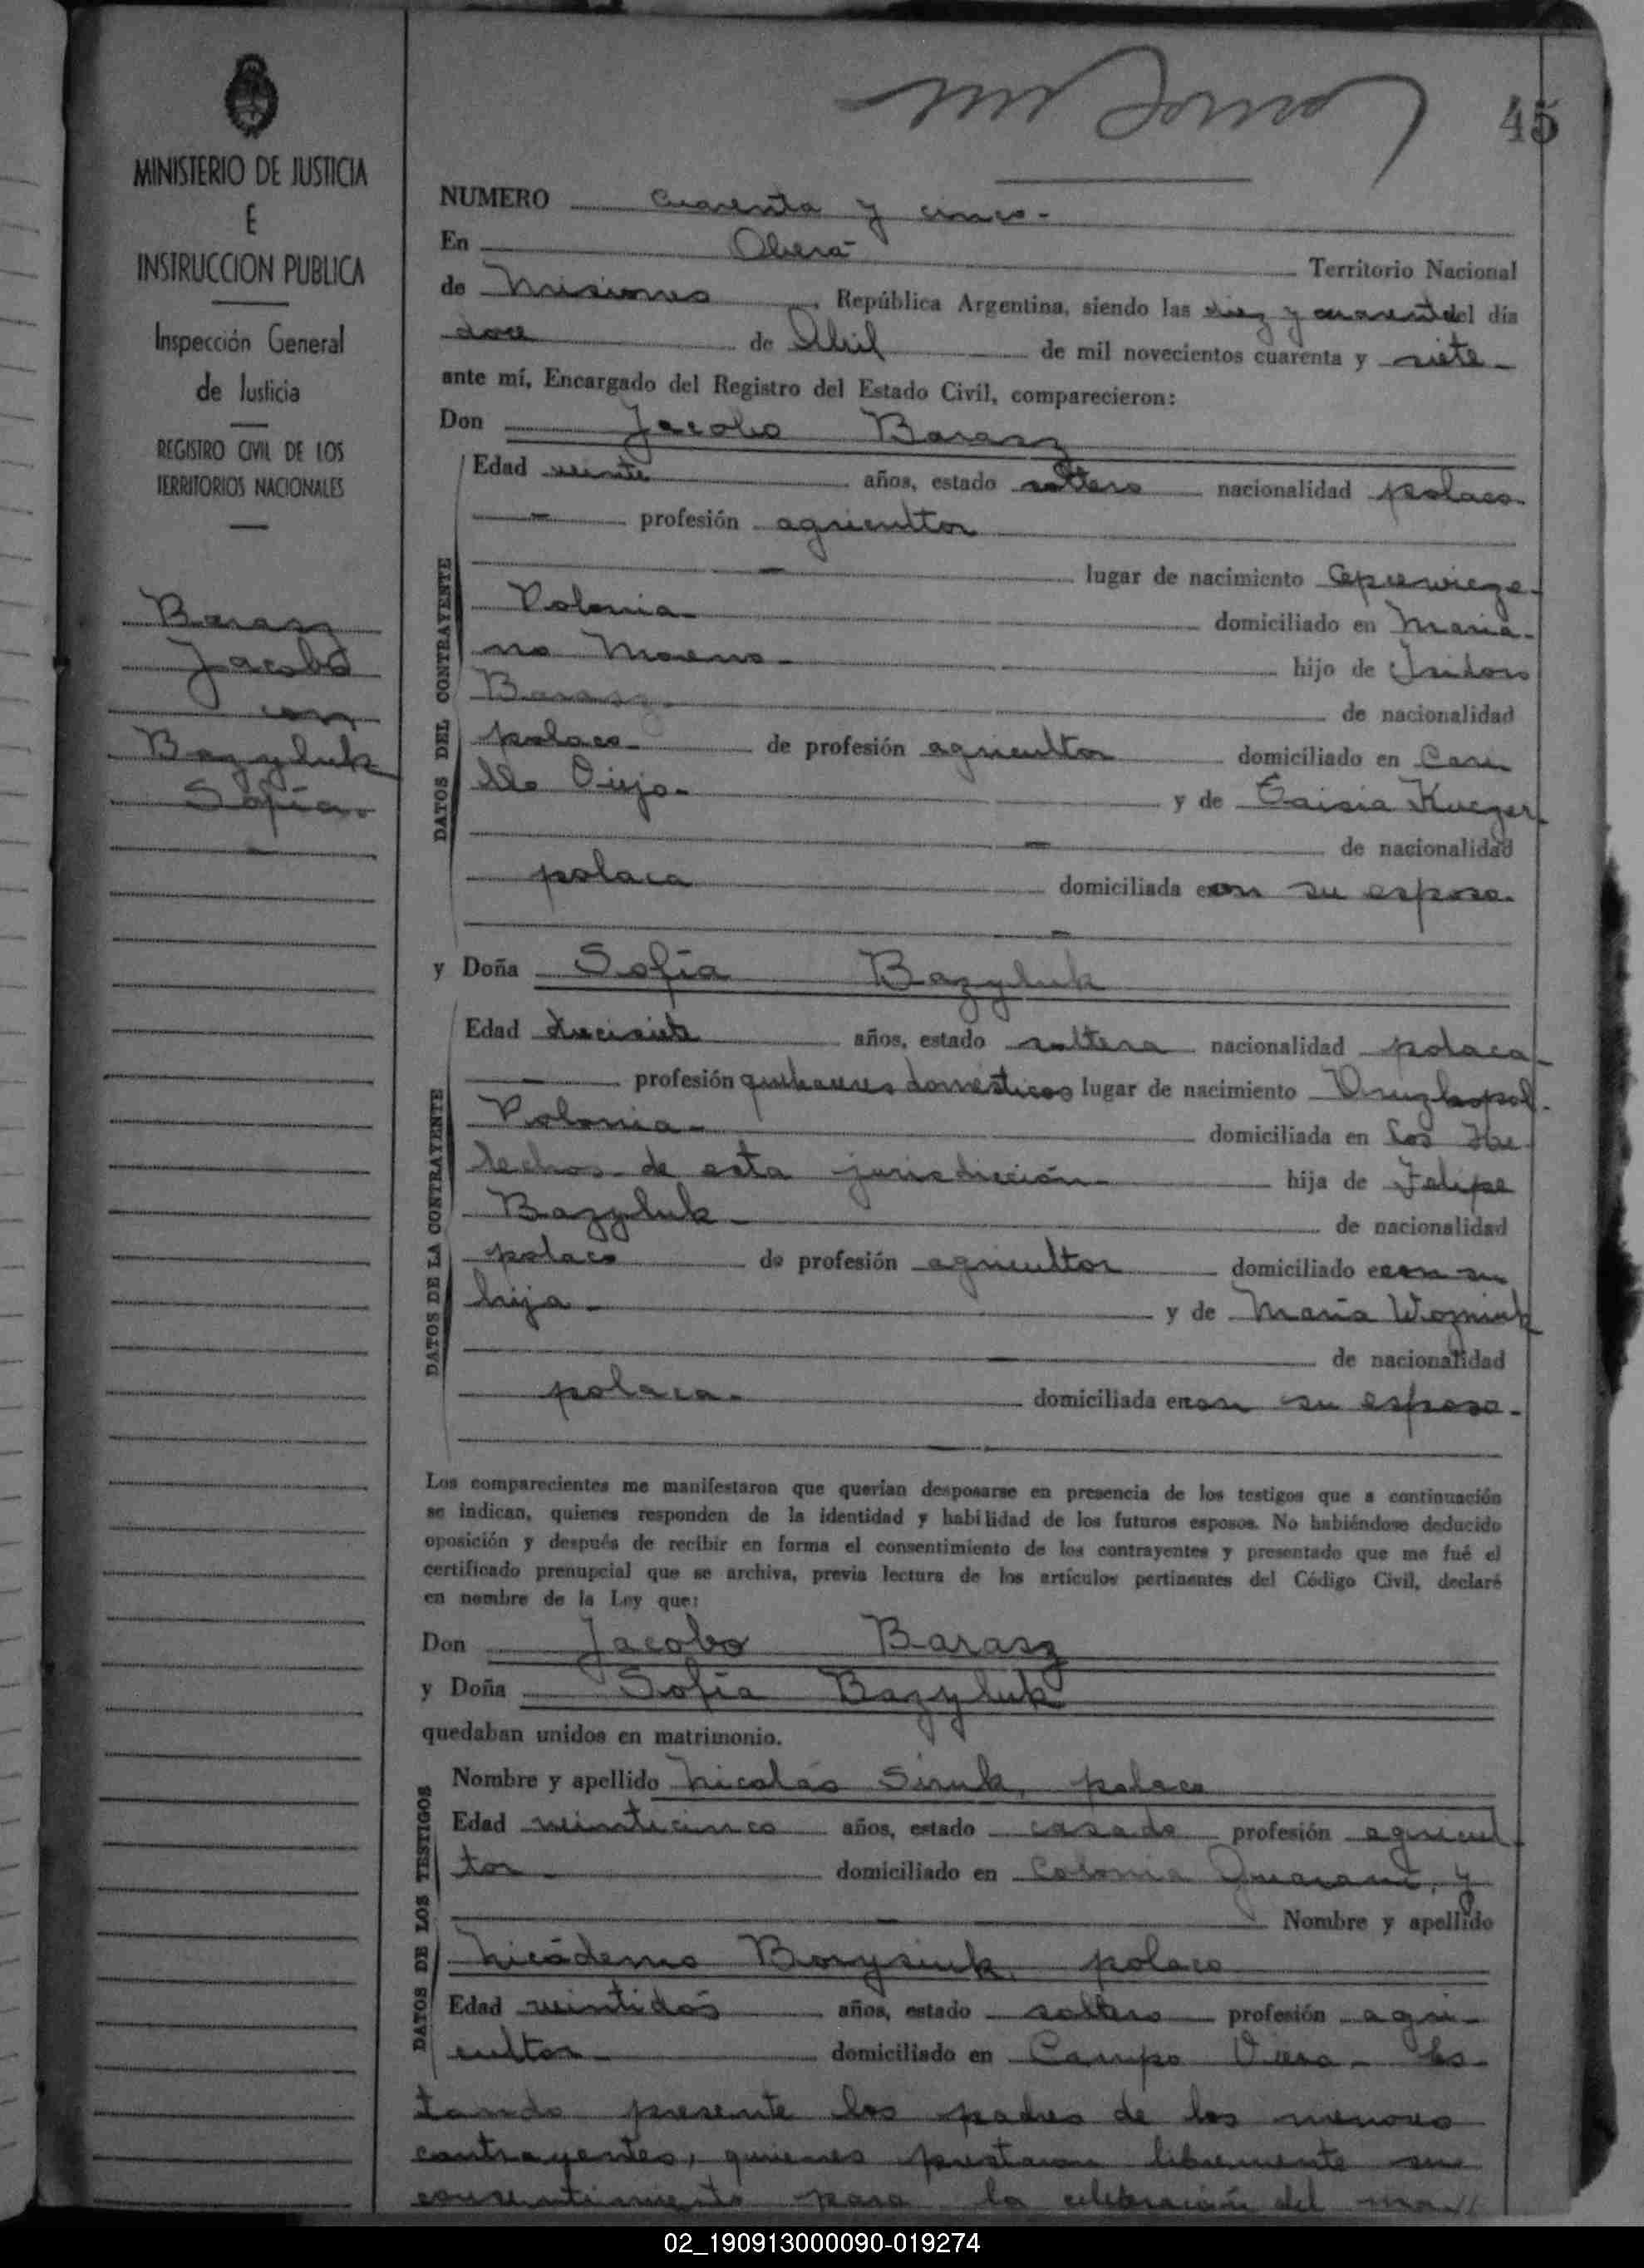 45
MINISTERIO DE JUSTICIA
E
INSTRUCCION PUBLICA
Inspección General
de Justicia
REGISTRO CIVIL DE LOS
TERRITORIOS NACIONALES
Barasz
Jacobo
con
Bazyluk
Sofía.
NUMERO cuarenta y cinco.
En Oberá Territorio Nacional
de Misiones, República Argentina, siendo las diez y cuarenta del día
doce de Abril de mil novecientos cuarenta y siete
ante mí, Encargado del Registro del Estado Civil, comparecieron:
Don Jacobo Barasz
Edad veinte años, estado soltero nacionalidad polaco.
profesión agricultor
lugar de nacimiento
Polonia domiciliado en Maria-
no Moreno hijo de Isidoro
Barasz de nacionalidad
polaco de profesión agricultor domiciliado en Cerri
llo Viejo. y de Kueger
de nacionalidad
polaca domiciliada con su esposo.
y Doña Sofía Bazyluk
Edad diecisiete años, estado soltera nacionalidad polaca
profesión quehaceres domésticos lugar de nacimiento Druzkopol.
Polonia domiciliada en Los He-
lechos de esta jurisdicción hija de Felipe
Bazyluk de nacionalidad
polaco de profesión agricultor domiciliado con su
hija y de María Wozniuk
de nacionalidad
polaca. domiciliada con su esposo.
Los comparecientes me manifestaron que querían desposarse en presencia de los testigos que a continuación
se indican, quienes responden de la identidad y habilidad de los futuros esposos. No habiéndose deducido
oposición y después de recibir en forma el consentimiento de los contrayentes y presentado que me fué el
certificado prenupcial que se archiva, previa lectura de los artículos pertinentes del Código Civil, declaré
en nombre de la Ley que:
Don Jacobo Barasz
y Doña Sofía Bazyluk
quedaban unidos en matrimonio.
Nombre y apellido Nicolás Siruk, polaco
Edad veinticinco años, estado casado profesión agricul-
tor domiciliado en Colonia Guaraní, y
Nombre y apellido
Nicódemo Borysiuk, polaco
Edad veintidós años, estado soltero profesión agri-
cultor domiciliado en Campo Viera. Es-
tando presente los padres de los menores
contrayentes, quienes prestaron libremente su
consentimiento para la celebración del ma//
DATOS DEL CONTRAYENTE
DATOS DE LA CONTRAYENTE
DATOS DE LOS TESTIGOS
02_190913000090-019274